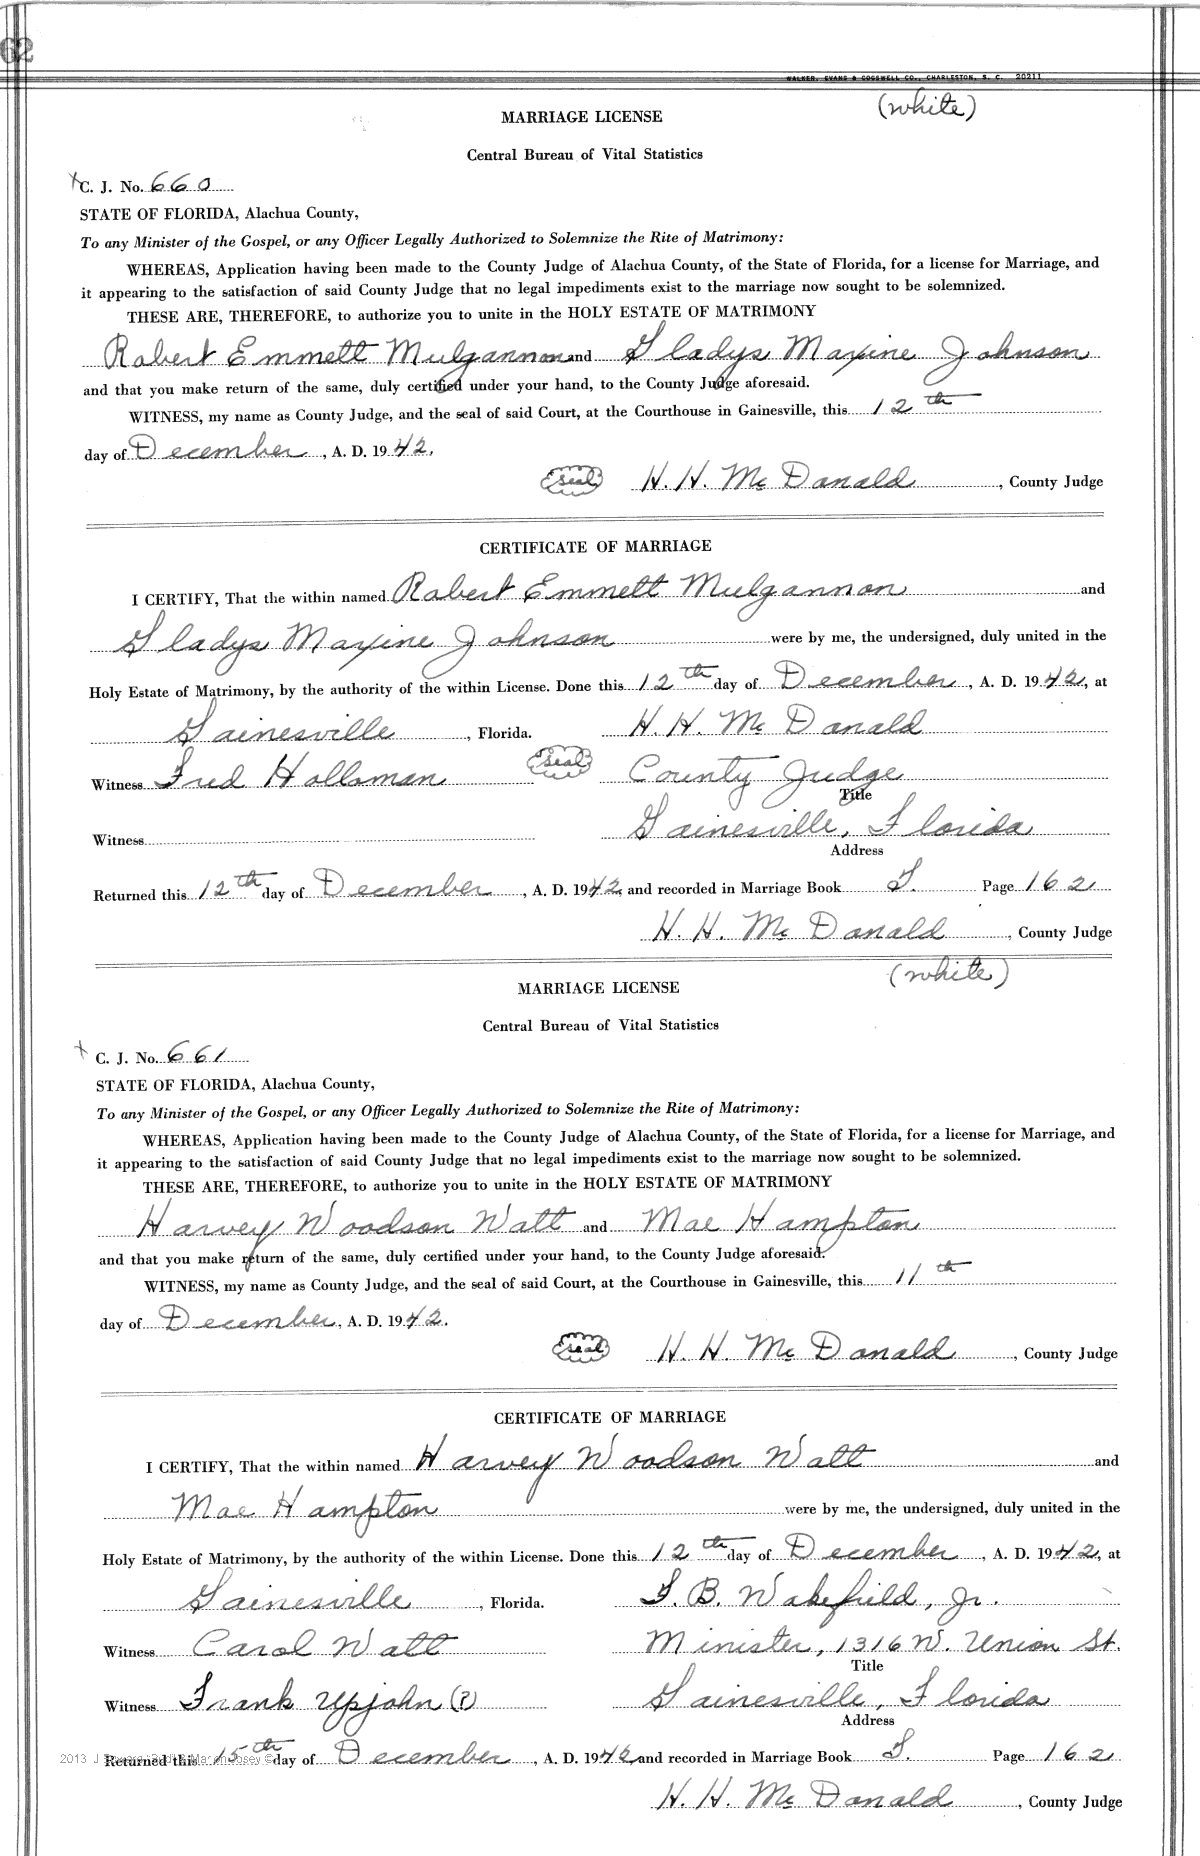 62
WALKER, EVANS & COGSWELL CO., CHARLESTON, S. C. 20211
(white)
MARRIAGE LICENSE
Central Bureau of Vital Statistics
C. J. No. 660
STATE OF FLORIDA, Alachua County,
To any Minister of the Gospel, or any Officer Legally Authorized to Solemnize the Rite of Matrimony:
WHEREAS, Application having been made to the County Judge of Alachua County, of the State of Florida, for a license for Marriage, and
it appearing to the satisfaction of said County Judge that no legal impediments exist to the marriage now sought to be solemnized.
THESE ARE, THEREFORE, to authorize you to unite in the HOLY ESTATE OF MATRIMONY
Robert Emmett Mulgannon and Gladys Maxine Johnson
and that you make return of the same, duly certified under your hand, to the County Judge aforesaid.
WITNESS, my name as County Judge, and the seal of said Court, at the Courthouse in Gainesville, this 12th
day of December, A. D. 1942.
seal H. H. McDonald, County Judge
CERTIFICATE OF MARRIAGE
I CERTIFY, That the within named Robert Emmett Mulgannon and
Gladys Maxine Johnson were by me, the undersigned, duly united in the
Holy Estate of Matrimony, by the authority of the within License. Done this 12th day of December, A. D. 1942, at
Gainesville, Florida. H. H. McDonald
Witness Fred Holloman seal County Judge
Title
Gainesville, Florida
Witness
Address
Returned this 12th day of December, A. D. 1942, and recorded in Marriage Book Page 162
H. H. McDonald, County Judge
(white)
MARRIAGE LICENSE
Central Bureau of Vital Statistics
C. J. No. 661
STATE OF FLORIDA, Alachua County,
To any Minister of the Gospel, or any Officer Legally Authorized to Solemnize the Rite of Matrimony:
WHEREAS, Application having been made to the County Judge of Alachua County, of the State of Florida, for a license for Marriage, and
it appearing to the satisfaction of said County Judge that no legal impediments exist to the marriage now sought to be solemnized.
THESE ARE, THEREFORE, to authorize you to unite in the HOLY ESTATE OF MATRIMONY
Harvey Woodson Watt and Mae Hampton
and that you make return of the same, duly certified under your hand, to the County Judge aforesaid.
WITNESS, my name as County Judge, and the seal of said Court, at the Courthouse in Gainesville, this 11th
day of December, A. D. 1942.
seal H. H. McDonald, County Judge
CERTIFICATE OF MARRIAGE
I CERTIFY, That the within named Harvey Woodson Watt and
Mae Hampton were by me, the undersigned, duly united in the
Holy Estate of Matrimony, by the authority of the within License. Done this 12th day of December, A. D. 1942, at
Gainesville, Florida. B. Wakefield, Jr.
Witness Carol Watt Minister, 1316 W. Union St.
Title
Witness Frank Upjohn (?) Gainesville, Florida
Address
Returned this 15th day of December, A. D. 1942, and recorded in Marriage Book Page 162
H. H. McDonald, County Judge